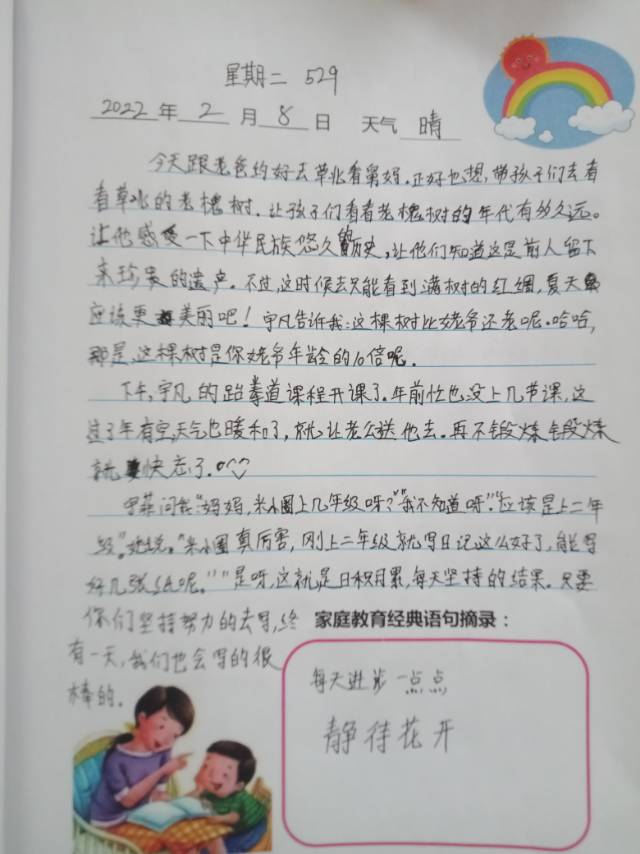 星期二 529
2022年2月8日 天气 晴
今天跟老爸约好去草北看舅妈.正好也想,带孩子们去看
看草北的老槐树.让孩子们看看老槐树的年代有多久远。
让他感受一下中华民族悠久的历史,让他们知道这是前人留下
来珍贵的遗产.不过,这时候去只能看到满树的红绸,夏天
应该更美丽吧!宇凡告诉我:这棵树比姥爷还老呢.哈哈,
那是,这棵树是你姥爷年龄的10倍呢.
下午,宇凡的跆拳道课程开课了.年前忙也没上几节课,这
过了年有空,天气也暖和了,就让老公送他去.再不锻炼锻炼
就快忘了.
宇菲问我:"妈妈,米小圈上几年级呀?""我不知道呀.""应该是上二年
级."她说."米小圈真厉害,刚上二年级就写日记这么好了,能写
好几张纸呢.""是呀,这就是日积月累,每天坚持的结果.只要
你们坚持努力的去写,终
有一天,我们也会写的很
棒的.
家庭教育经典语句摘录:
每天进步一点点
静待花开